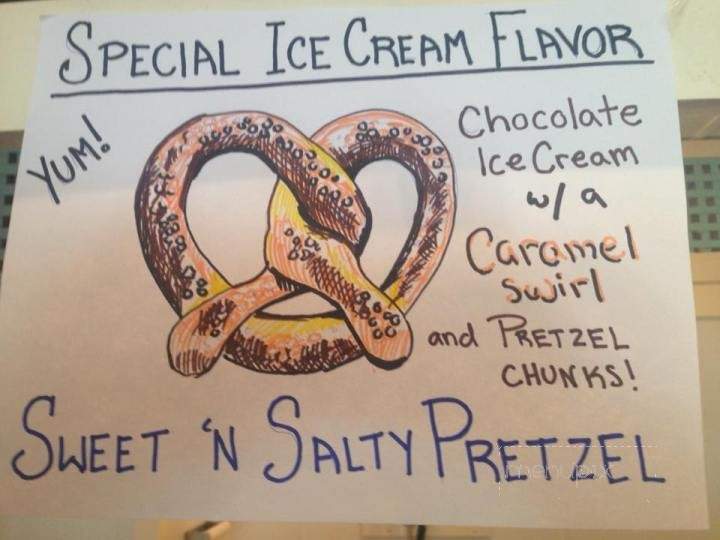 SPECIAL ICE CREAM FLAVOR
YUM!
Chocolate
Ice Cream
w/ a
Caramel
swirl
and PRETZEL
CHUNKS!
SWEET 'N SALTY PRETZEL
menupix